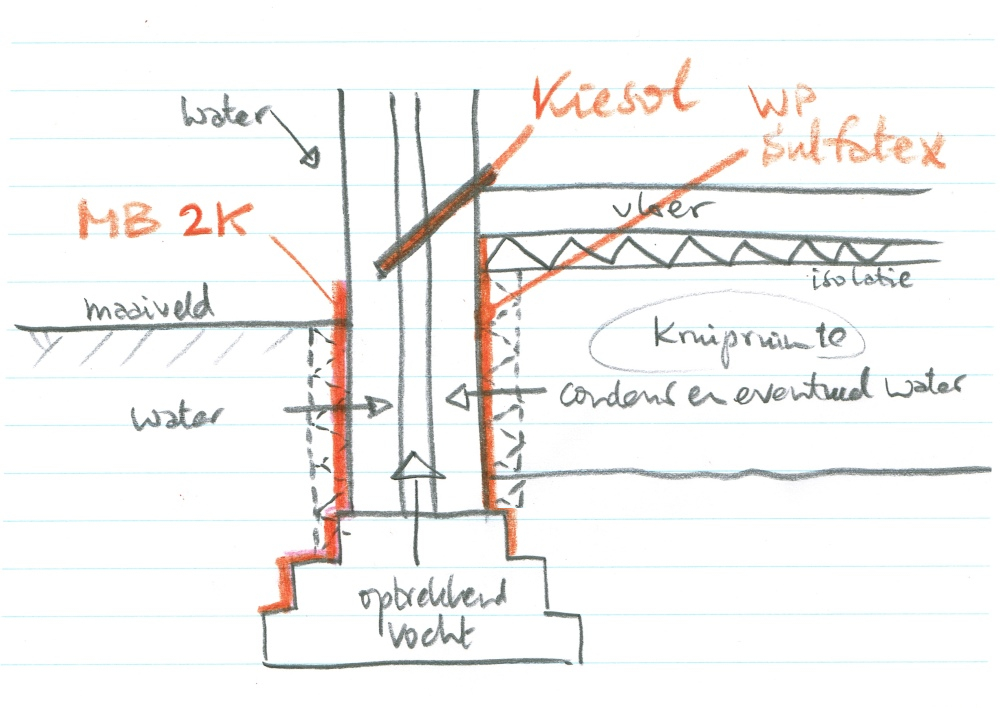 Kiesol
WP
Sulfatex
water
MB 2K
vloer
isolatie
maaiveld
Kruipruimte
condens en eventueel water
water
optrekkend
vocht